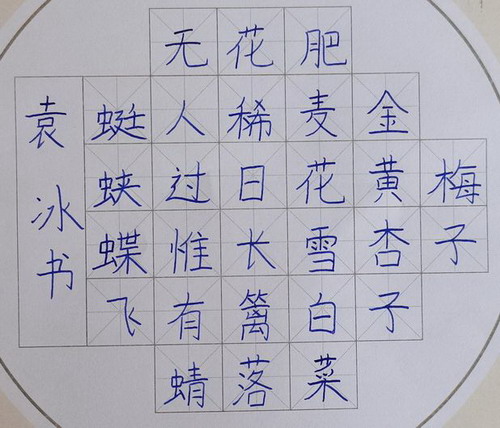 梅子
金黄杏子
肥麦花雪白菜
花稀日长篱落
无人过惟有蜻
蜓蛱蝶飞
袁冰书